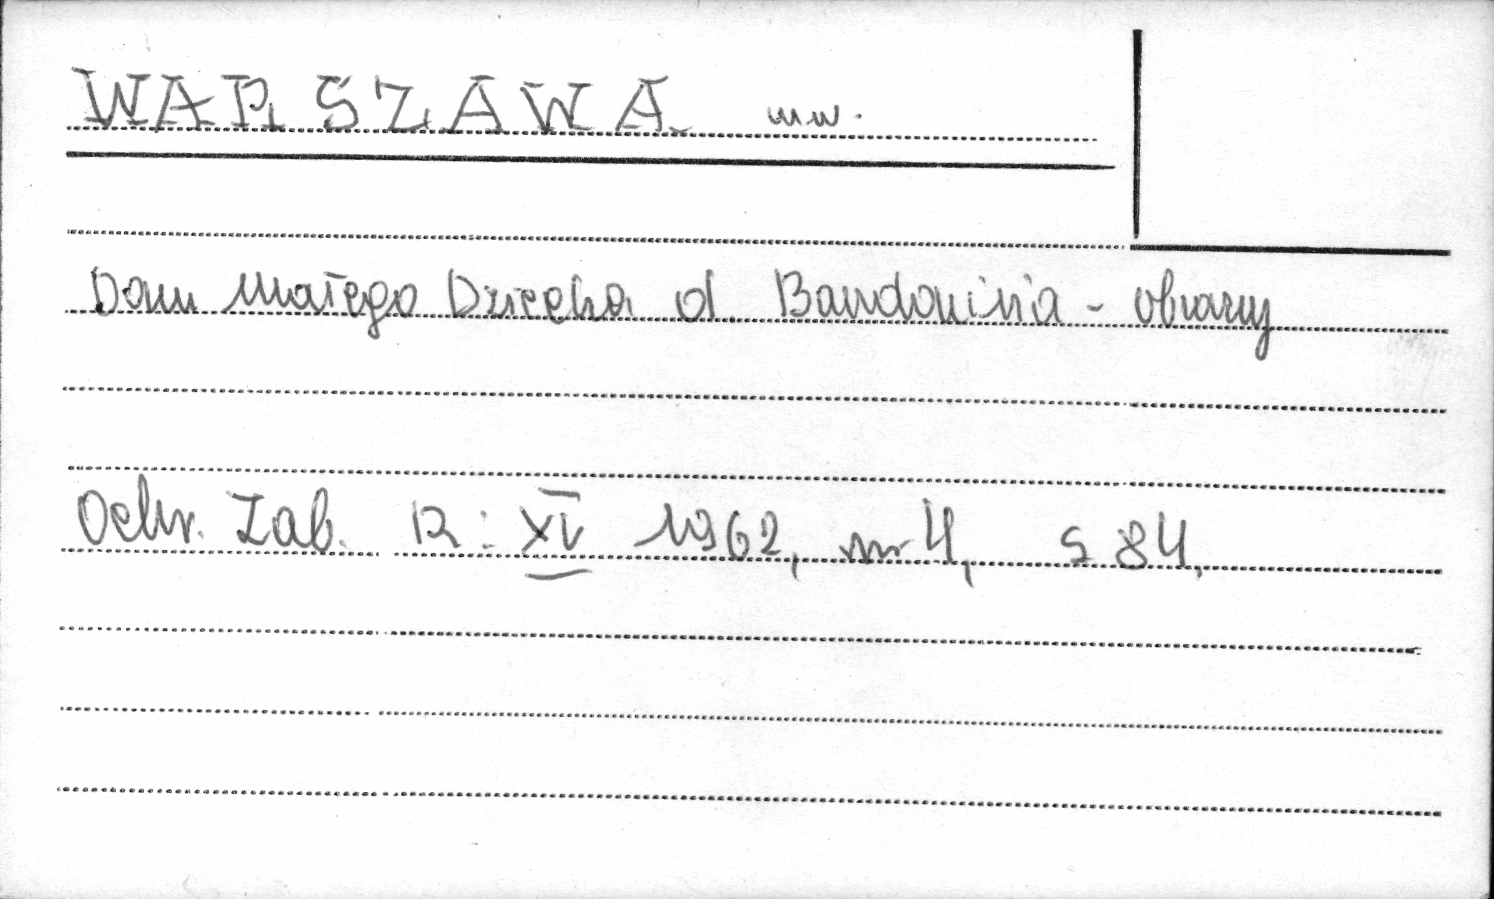 WARSZAWA mw.
Dom Małego Dziecka d. Baudouin'a - obrazy
Ochr. Zab. R: XV 1962, nr 4, s 84,